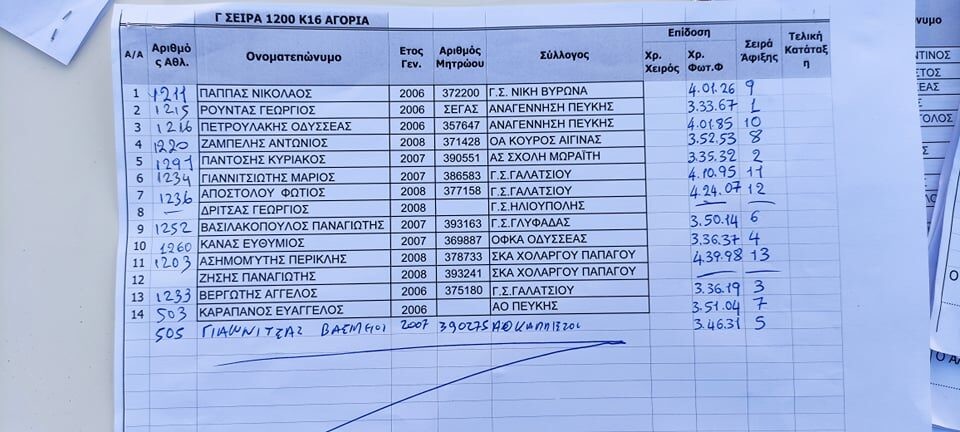 Γ ΣΕΙΡΑ 1200 Κ16 ΑΓΟΡΙΑ
Α/Α Αριθμός Αθλ. Ονοματεπώνυμο Ετος Γεν. Αριθμός Μητρώου Σύλλογος Επίδοση Χρ. Χειρός Χρ. Φωτ.Φ Σειρά Άφιξης Τελική Κατάταξη
1 1211 ΠΑΠΠΑΣ ΝΙΚΟΛΑΟΣ 2006 372200 Γ.Σ. ΝΙΚΗ ΒΥΡΩΝΑ 4.01.26 9
2 1215 ΡΟΥΝΤΑΣ ΓΕΩΡΓΙΟΣ 2006 ΣΕΓΑΣ ΑΝΑΓΕΝΝΗΣΗ ΠΕΥΚΗΣ 3.33.67 1
3 1216 ΠΕΤΡΟΥΛΑΚΗΣ ΟΔΥΣΣΕΑΣ 2006 357647 ΑΝΑΓΕΝΝΗΣΗ ΠΕΥΚΗΣ 4.01.85 10
4 1220 ΖΑΜΠΕΛΗΣ ΑΝΤΩΝΙΟΣ 2008 371428 ΟΑ ΚΟΥΡΟΣ ΑΙΓΙΝΑΣ 3.52.53 8
5 1291 ΠΑΝΤΟΣΗΣ ΚΥΡΙΑΚΟΣ 2007 390551 ΑΣ ΣΧΟΛΗ ΜΩΡΑΪΤΗ 3.35.32 2
6 1234 ΓΙΑΝΝΙΤΣΙΩΤΗΣ ΜΑΡΙΟΣ 2007 386583 Γ.Σ.ΓΑΛΑΤΣΙΟΥ 4.10.95 11
7 1236 ΑΠΟΣΤΟΛΟΥ ΦΩΤΙΟΣ 2008 377158 Γ.Σ.ΓΑΛΑΤΣΙΟΥ 4.24.07 12
8 — ΔΡΙΤΣΑΣ ΓΕΩΡΓΙΟΣ 2008 Γ.Σ.ΗΛΙΟΥΠΟΛΗΣ — —
9 1252 ΒΑΣΙΛΑΚΟΠΟΥΛΟΣ ΠΑΝΑΓΙΩΤΗΣ 2007 393163 Γ.Σ.ΓΛΥΦΑΔΑΣ 3.50.14 6
10 1260 ΚΑΝΑΣ ΕΥΘΥΜΙΟΣ 2007 369887 ΟΦΚΑ ΟΔΥΣΣΕΑΣ 3.36.37 4
11 1203 ΑΣΗΜΟΜΎΤΗΣ ΠΕΡΙΚΛΗΣ 2008 378733 ΣΚΑ ΧΟΛΑΡΓΟΥ ΠΑΠΑΓΟΥ 4.39.98 13
12 ΖΗΣΗΣ ΠΑΝΑΓΙΩΤΗΣ 2008 393241 ΣΚΑ ΧΟΛΑΡΓΟΥ ΠΑΠΑΓΟΥ — —
13 1233 ΒΕΡΓΩΤΗΣ ΑΓΓΕΛΟΣ 2006 375180 Γ.Σ.ΓΑΛΑΤΣΙΟΥ 3.36.19 3
14 503 ΚΑΡΑΠΑΝΟΣ ΕΥΑΓΓΕΛΟΣ 2006 ΑΟ ΠΕΥΚΗΣ 3.51.04 7
505 ΓΙΑΝΝΙΤΣΑΣ 2007 390275 3.46.31 5